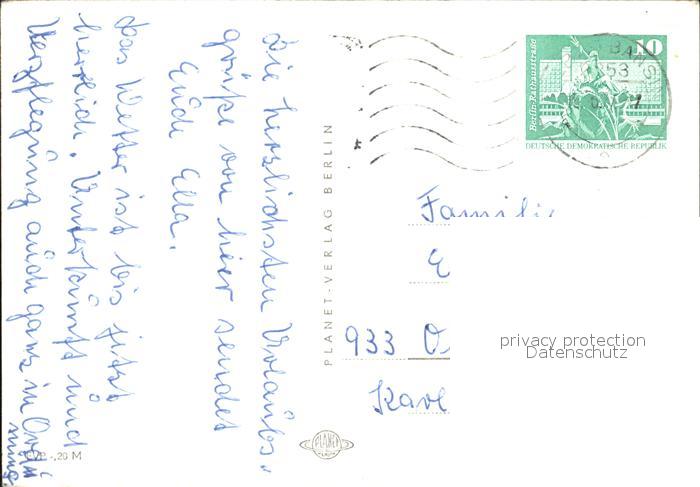 Die herzlichsten Urlaubs-
grüße von hier sendet
Euch Ella.
Das Wetter ist bis jetzt
herrlich. Unterkunft und
Verpflegung auch ganz in Ord-
nung
PLANET-VERLAG BERLIN
PLANET
EVP -,20 M
10
Berlin-Rathausstraße
DEUTSCHE DEMOKRATISCHE REPUBLIK
BANS
253
Familie
E
933 O
Karl
privacy protection
Datenschutz